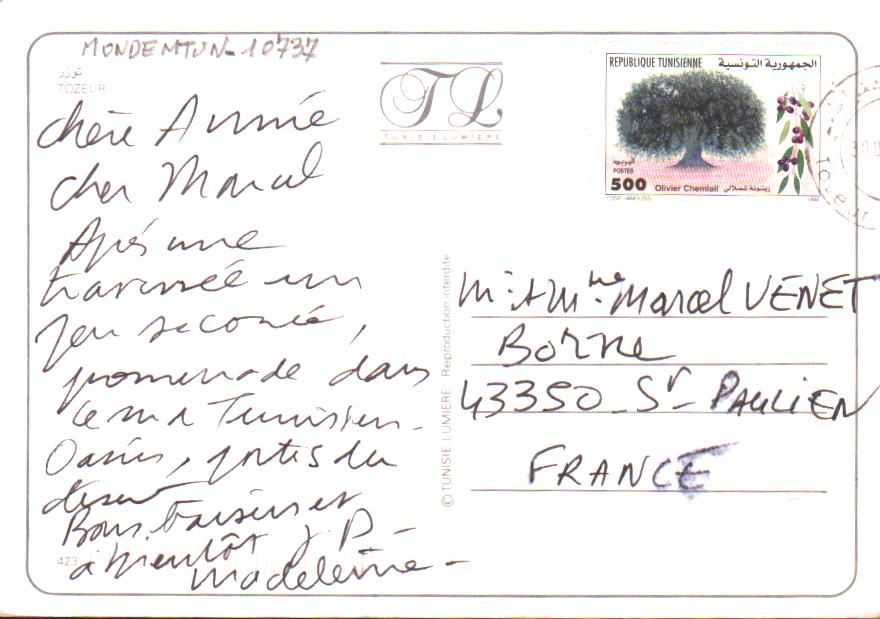 MONDEMTUN-10737
توزر
TOZEUR
TL
TUNISIE LUMIERE
REPUBLIQUE TUNISIENNE الجمهورية التونسية
البريد
POSTES
500 Olivier Chemlali زيتونة شملالي
1998
Tozeur
chère Annie
cher Marcel
Après une
traversée un
peu secouée,
promenade dans
le sud Tunisien-
Oasis, portes du
désert
Bons baisers et
à bientôt J.P-
Madeleine-
423
© TUNISIE LUMIERE Reproduction interdite
Mr & Mme Marcel VENET
Borne
43350 - St - PAULIEN
FRANCE